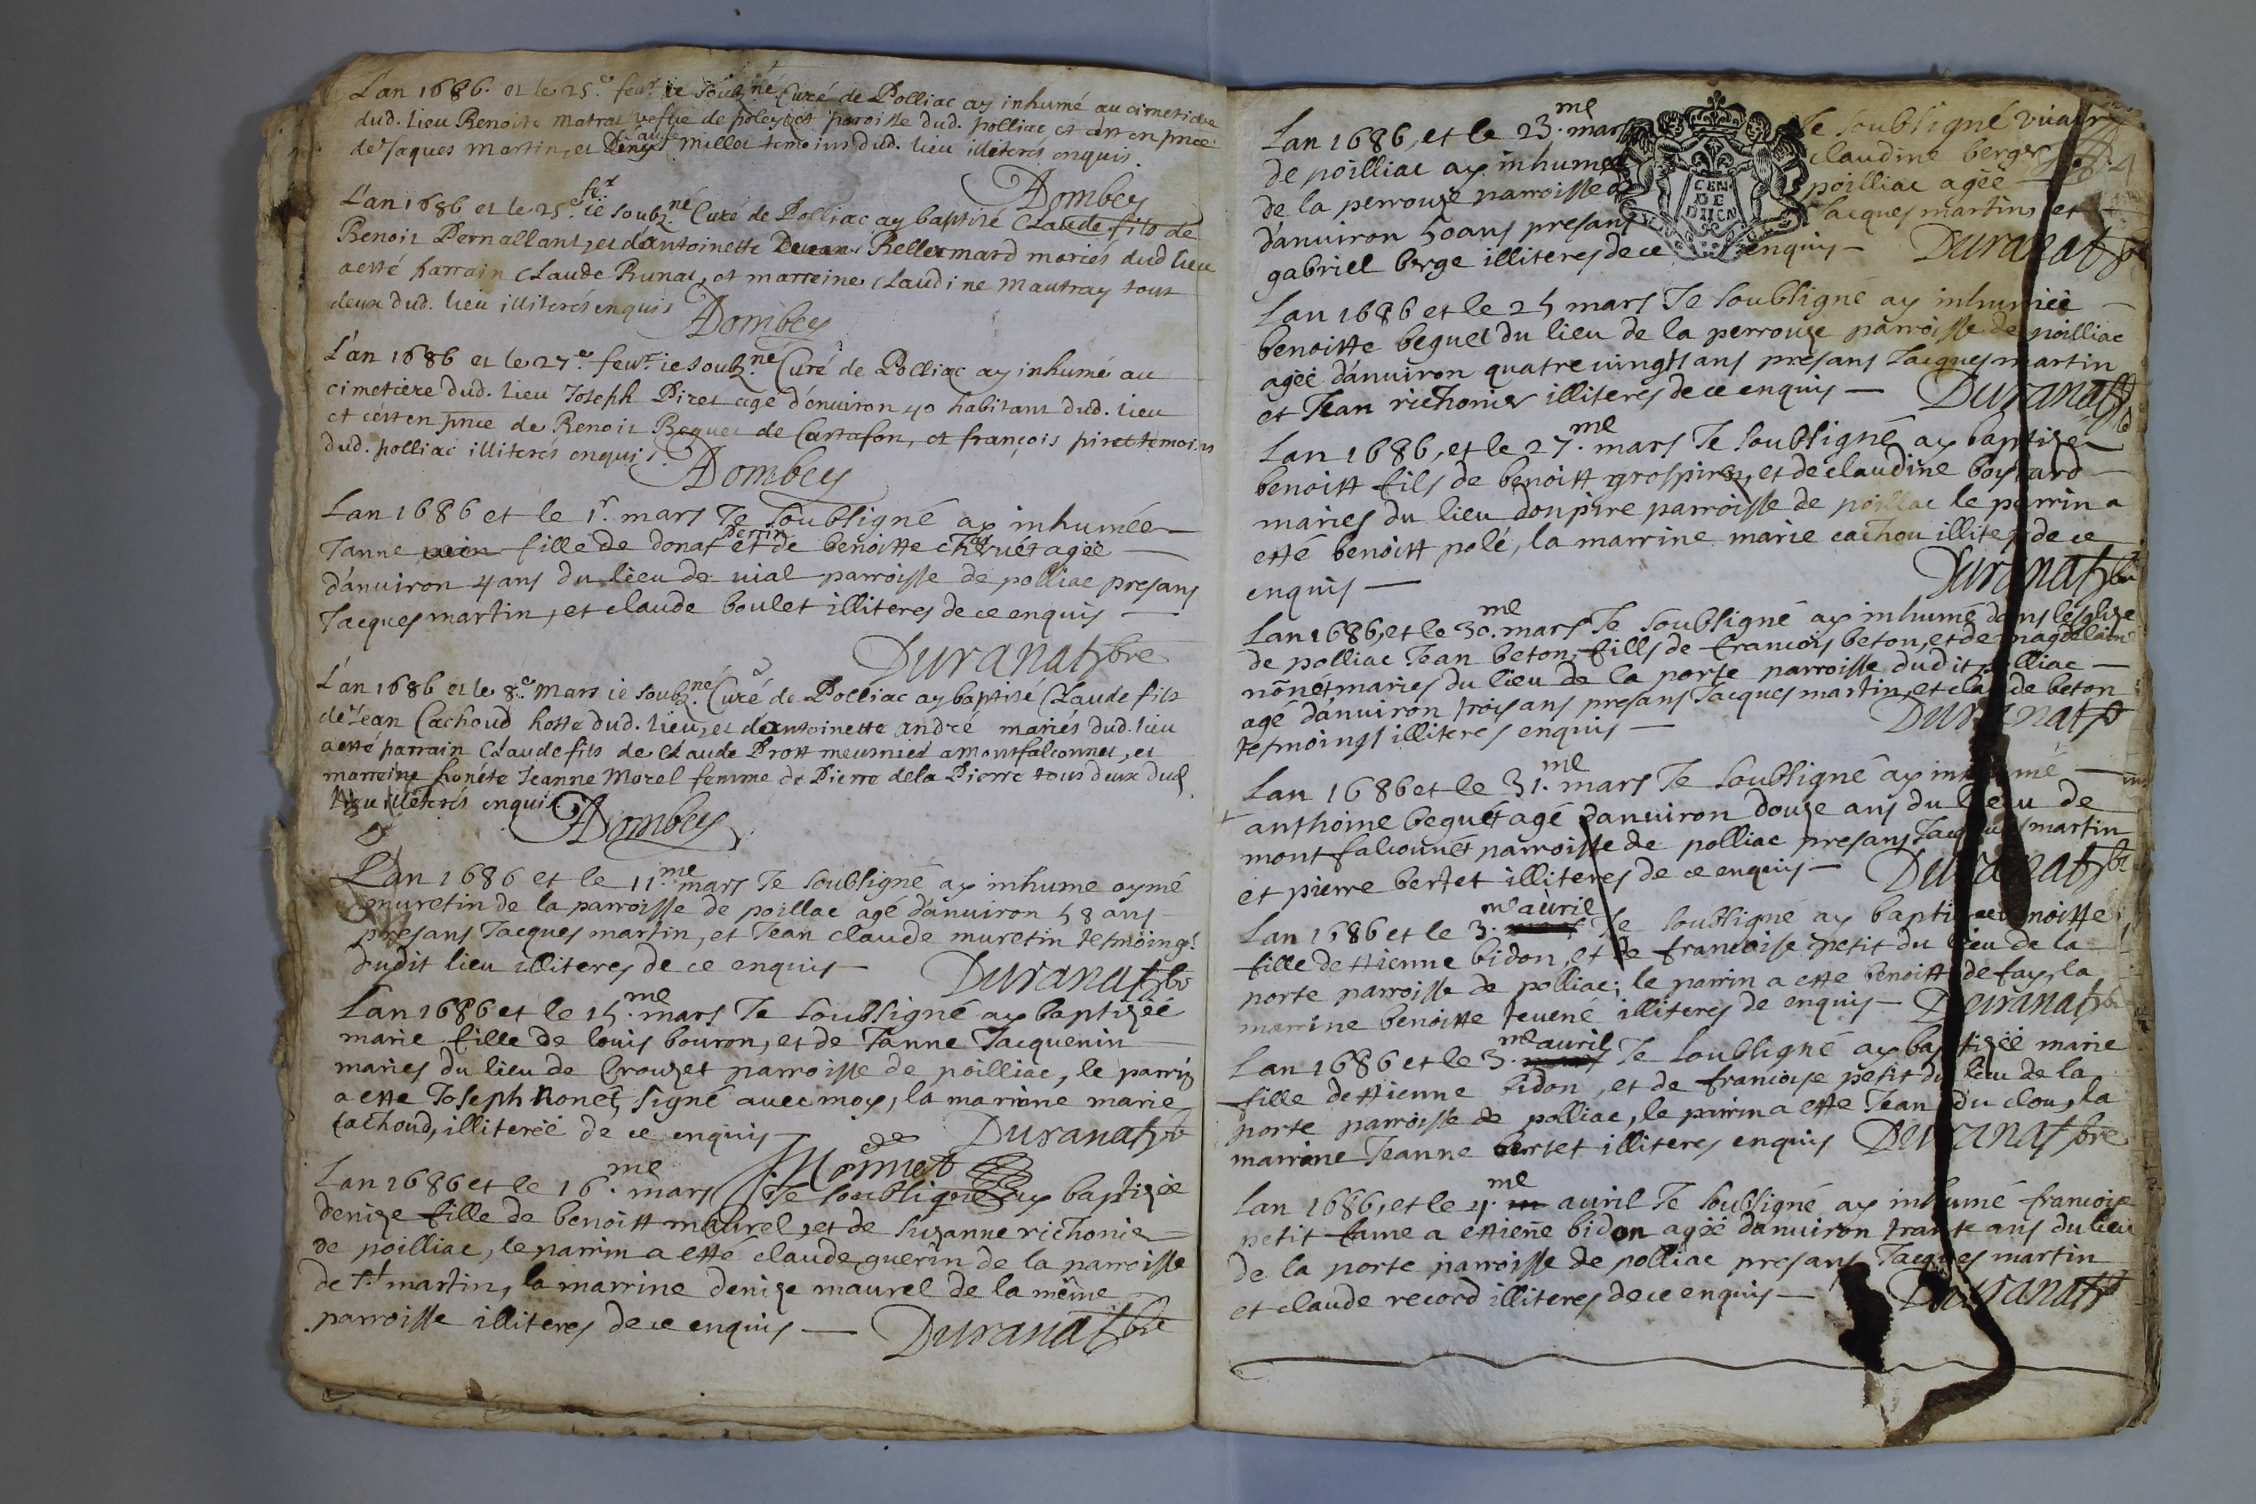 L'an 1686. et le 25.e feur. ie soubz.né Curé de Polliac ay inhumé au cimetière
dud. lieu Benoite Matrat vefue de poleyzet paroisse dud. polliac et cest en pnce
de Jaques Martin, et Claude Millet temoins dud. lieu illiterés enquis.
ADombey
L'an 1686 et le 25.e feur ie soubz.né Curé de Polliac ay baptisé Claude fils de
Benoit Pernallant, et d'antoinette Bellermard mariés dud lieu
a esté parrain Claude Brunat, et marreine Claudine Mautray tous
deux dud. lieu illiterés enquis
ADombey
L'an 1686 et le 27.e feur. ie soubz.né Curé de Polliac ay inhumé au
cimetière dud. lieu Joseph Piret agé d'enuiron 40 habitant dud. lieu
et cest en pnce de Benoit Beguet de Cartafon, et françois piret temoins
dud. polliac illiterés enquis.
ADombey
Lan 1686 et le 1r. mars Je soubsigné ay inhumée
Janne fille de donat perrin et de benoitte agèe
d'anuiron 4 ans du lieu de uial parroisse de polliac presans
Jacques martin, et claude boulet illiteres de ce enquis
Duranat pbre
L'an 1686 et le 8.e Mars ie soubz.né Curé de Polliac ay baptisé Claude fils
de Jean Cachoud hoste dud. lieu, et d'antoinette andré mariés dud. lieu
a esté parrain Claude fils de Claude Prott meusnier a Montfalconnet, et
marreine honéte Jeanne Morel femme de Pierre dela Pierre tous deux dud.
lieu illiterés enquis
ADombey
Lan 1686 et le 11.me mars Je soubsigné ay inhume aymé
muretin de la parroisse de poillac agé d'anuiron 58 ans
presans Jacques martin, et Jean claude muretin tesmoings
dudit lieu illiteres de ce enquis
Duranat pbr
Lan 1686 et le 15.me mars Je soubsigné ay baptizéé
marie fille de louis bouron, et de Janne Jacquenin
maries du lieu de Crouzet parroisse de poilliac, le parrin
a este Joseph Nonet, signé auec moy, la marrine marie
Cachoud, illiteréé de ce enquis
Duranat pbr
J. Monnet
Lan 1686 et le 16.me mars Je soubsigné ay baptizéé
denize fille de benoitt maurel, et de suzanne richonier
de poilliac, le parrin a esté claude guerin de la parroisse
de St martin, la marrine denize maurel de la même
parroisse illiteres de ce enquis
Duranat pbre
Lan 1686, et le 23.me mars Je soubsigné vicaire
de poilliac ay inhumée claudine berger
de la perrouze parroisse de poilliac agéé
d'anuiron 50 ans presans Jacques martin, et
gabriel berge illiteres de ce enquis
Duranat pbr
CEN
DE
DIJON
Lan 1686 et le 25 mars Je soubsigné ay inhuméé
benoitte beguet du lieu de la perrouze parroisse de poilliac
agéé d'anuiron quatre uingts ans presans Jacques martin
et Jean richonier illiteres de ce enquis
Duranat pb
Lan 1686, et le 27.me mars Je soubsigné ay baptizer
benoitt fils de benoitt grospiron, et de claudine boyvard
maries du lieu donpire parroisse de poillac le parrin a
esté benoitt polé, la marrine marie cachou illiter de ce
enquis
Duranat pbr
Lan 1686, et le 30.me mars Je soubsigné ay inhumé dans lesglize
de polliac Jean beton, fills de francois beton, et de magdelaine
nonet maries du lieu de la porte parroisse dudit polliac
agé d'anuiron trois ans presans Jacques martin, et claude beton
tesmoings illiteres enquis
Duranat p
Lan 1686 et le 31.me mars Je soubsigné ay inhumé
anthoine bequet agé d'anuiron douze ans du lieu de
mont falconnet parroisse de polliac presans Jacques martin
et pierre bertet illiteres de ce enquis
Duranat pbr
Lan 1686 et le 3.me auril Je soubsigné ay baptizee benoitte
fille dettienne bidon, et de francoise petit du lieu de la
porte parroisse de polliac; le parrin a esté benoitt de fay, la
marrine benoitte teuené illiteres de enquis
Duranat pbr
Lan 1686 et le 3.me auril Je soubsigné ay baptizéé marie
fille dettienne bidon, et de francoise petit du lieu de la
porte parroisse de polliac, le parrin a esté Jean du clou, la
marrine Jeanne bertet illiteres enquis
Duranat pbre
Lan 1686, et le 4.me auril Je soubsigné ay inhumé francoise
petit fame a ettiene bidon agéé d'anuiron trante ans du lieu
de la porte parroisse de polliac presans Jacques martin
et claude record illiteres de ce enquis
Duranat p